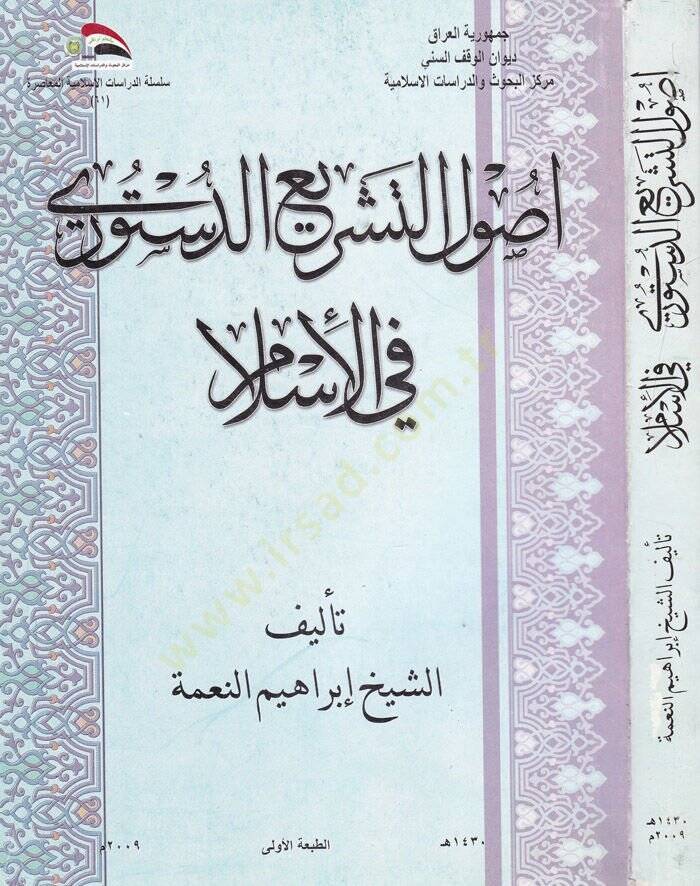 جمهورية العراق
ديوان الوقف السني
مركز البحوث والدراسات الاسلامية
مركز البحوث والدراسات الإسلامية
سلسلة الدراسات الإسلامية المعاصرة
(٦١)
اصول التشريع الدستوري
في الإسلام
تأليف
الشيخ إبراهيم النعمة
١٤٣٠هـ الطبعة الأولى ٢٠٠٩م
اصول التشريع الدستوري في الإسلام
تأليف الشيخ إبراهيم النعمة
١٤٣٠هـ
٢٠٠٩م
www.irsad.com.tr